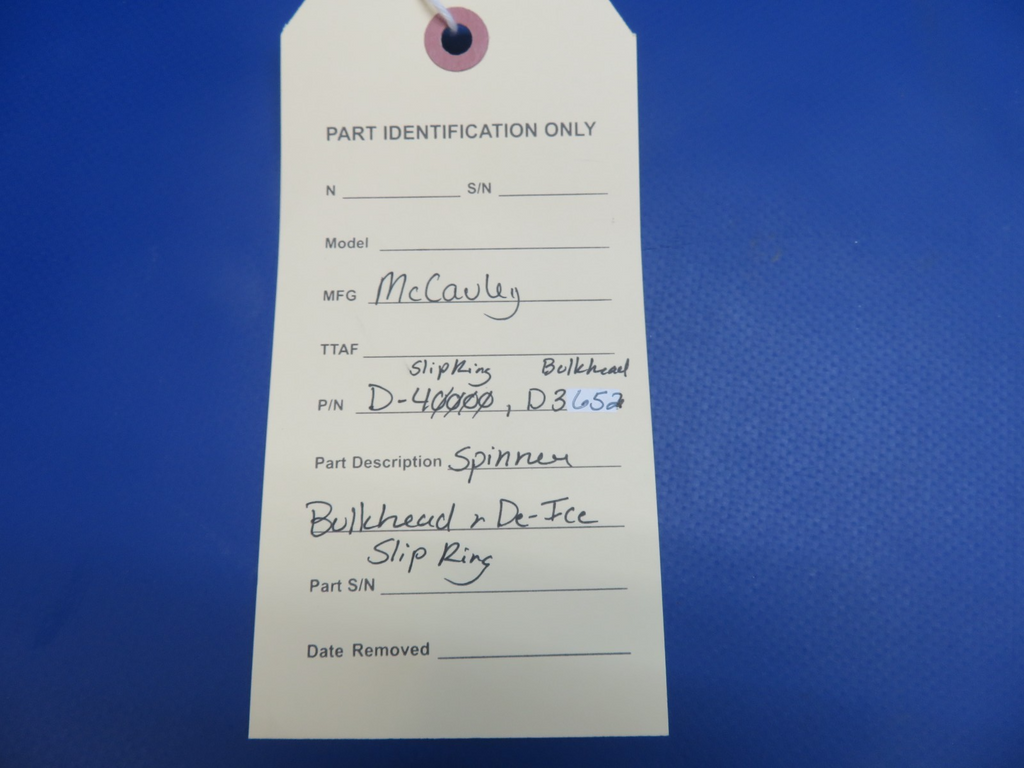 PART IDENTIFICATION ONLY
N S/N
Model
MFG McCauley
TTAF
SlipRing Bulkhead
P/N D-40000, D3652
Part Description Spinner
Bulkhead & De-Ice
Slip Ring
Part S/N
Date Removed